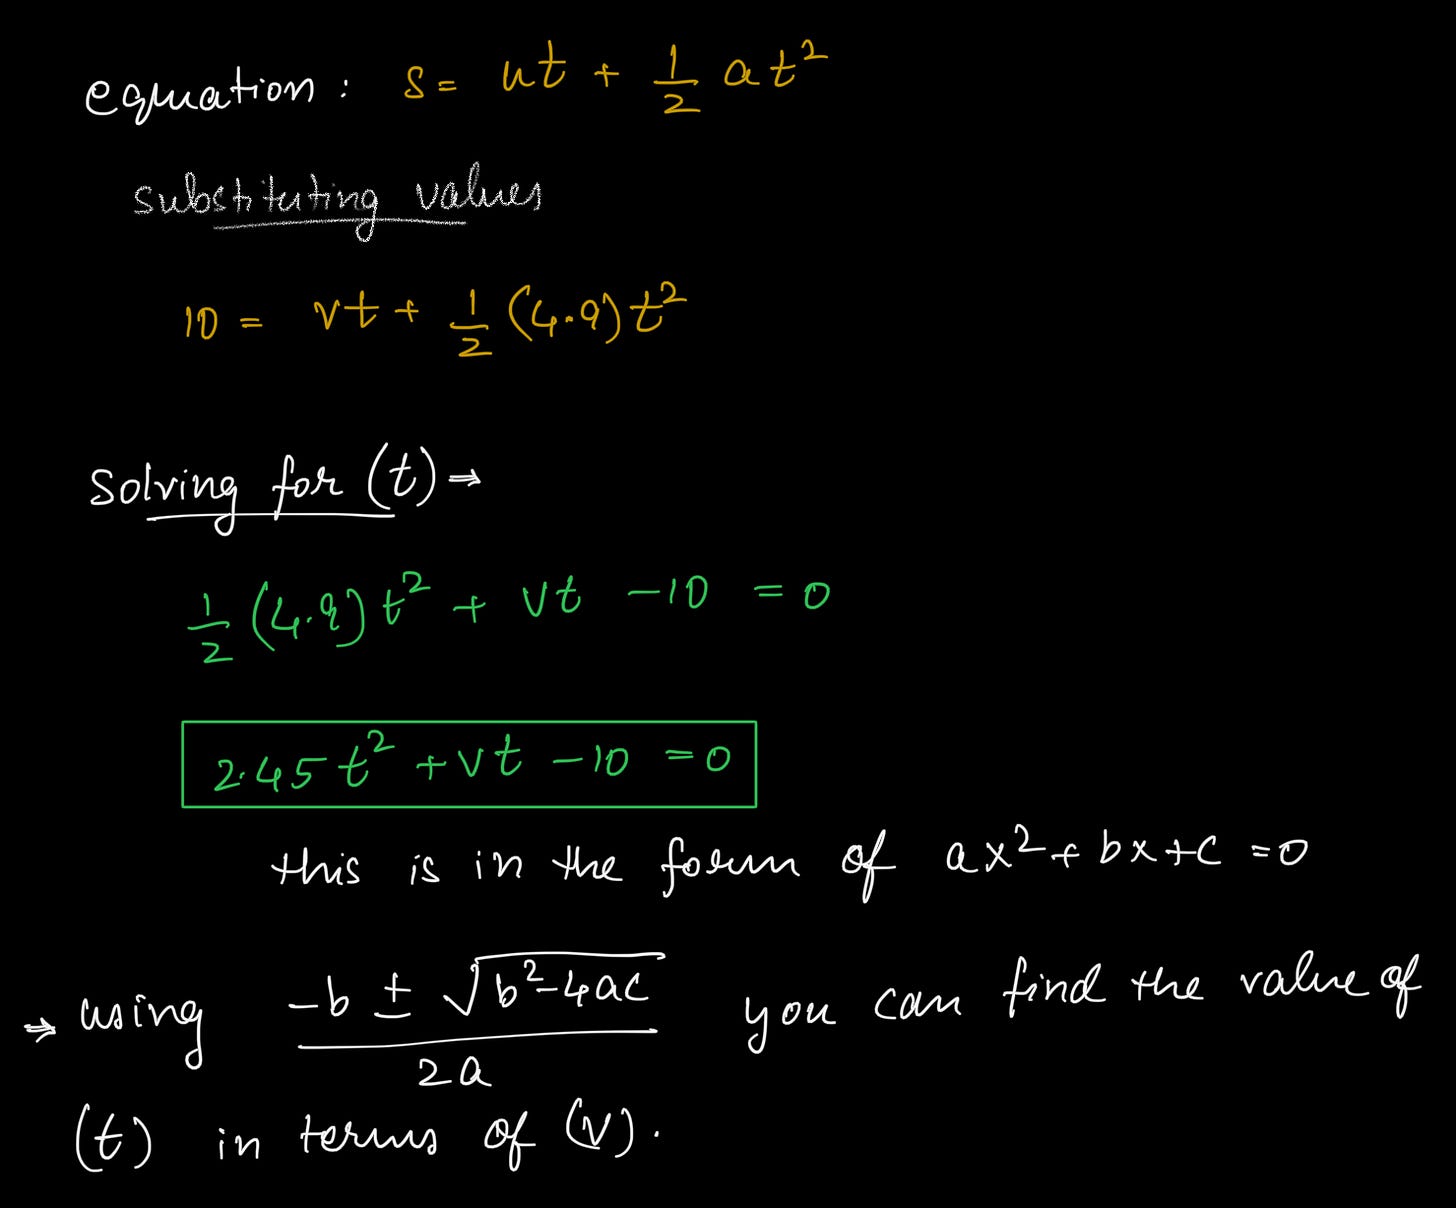 equation : s = ut + 1/2 at²
substituting values
10 = vt + 1/2 (4.9)t²
Solving for (t) ⇒
1/2 (4.9)t² + vt - 10 = 0
2.45t² + vt - 10 = 0
this is in the form of ax² + bx + c = 0
⇒ using (-b ± √(b²-4ac))/2a you can find the value of
(t) in terms of (v).